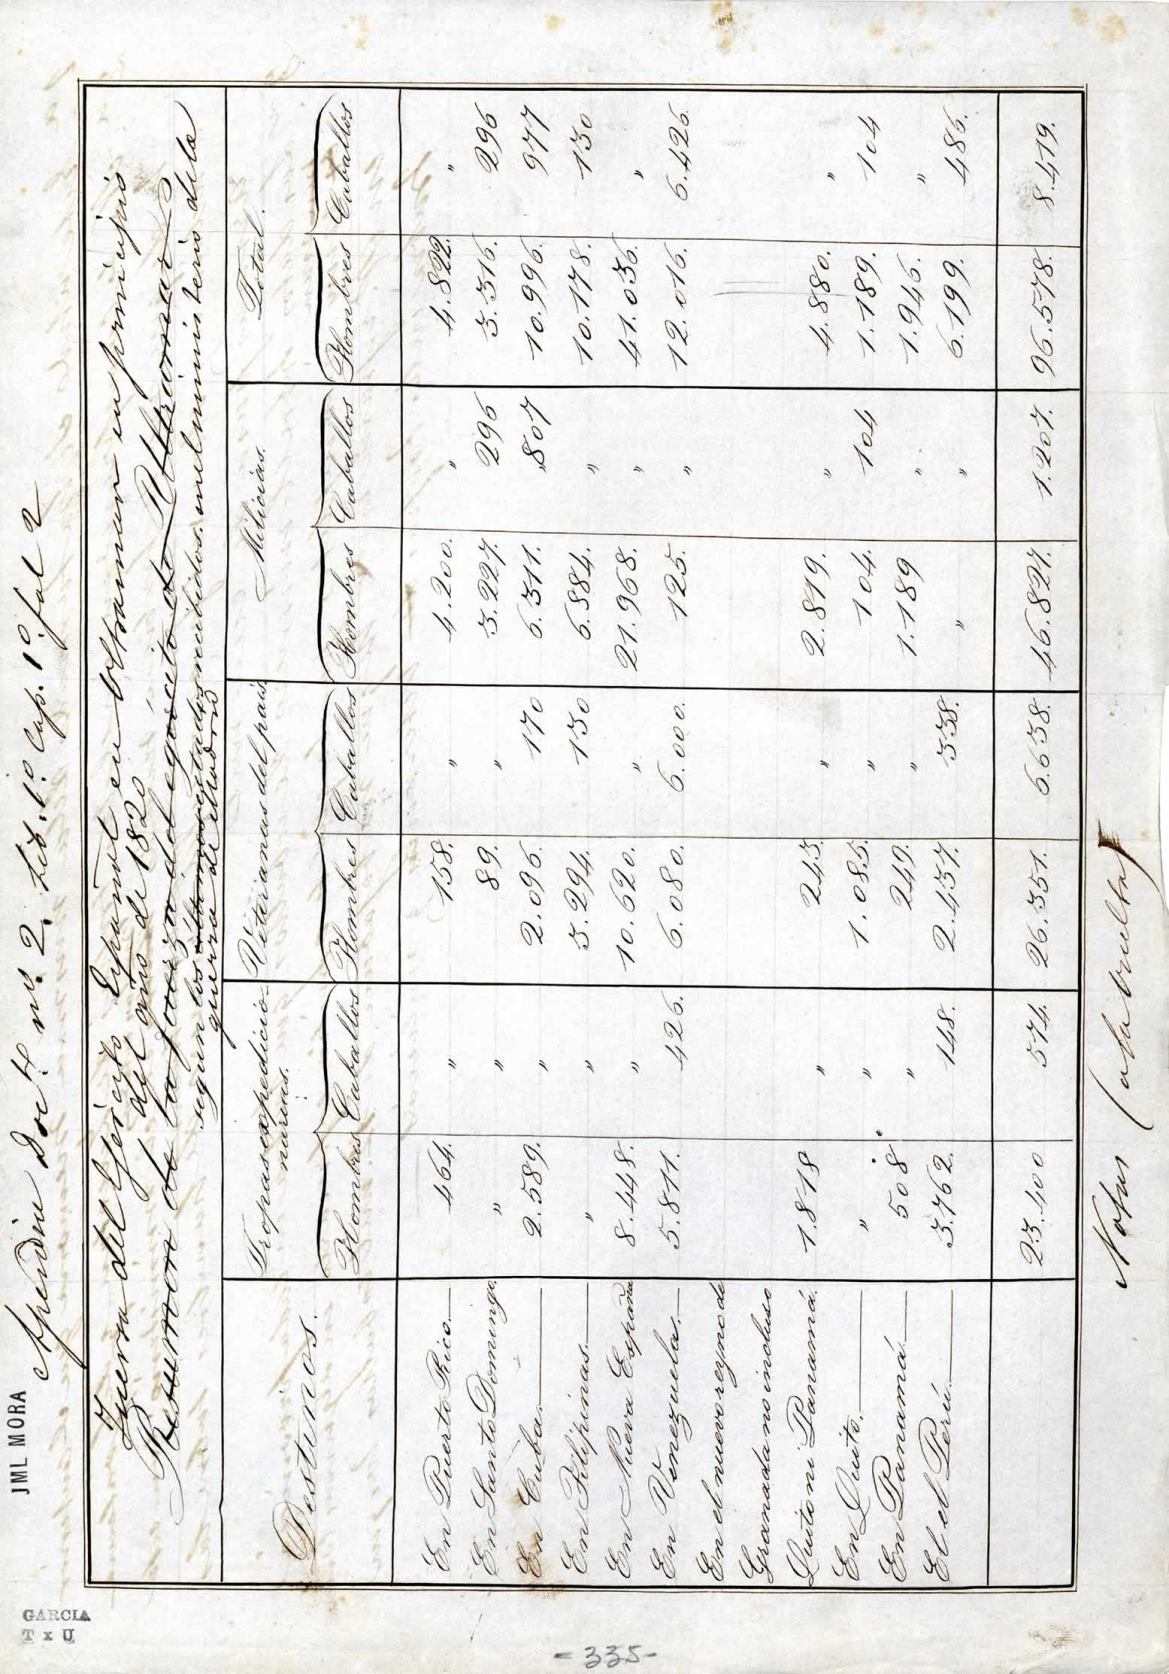 JML MORA
Apendice Doc.to n.o 2. Lib. 1.o Cap. 1.o fol 2
Fuerza del Ejército Español en Ultramar en principio
del año de 1820
Resumen de la fuerza del egército de Ultramar
segun los ultimos estados recibidos en el ministerio de la
guerra de Madrid
Destinos. Tropas expedicionarias. Veteranas del pais. Milicias. Total.
Hombres Caballos Hombres Caballos Hombres Caballos Hombres Caballos
En Puerto Rico. 464. " 158. " 4.200. " 4.822. "
En Santo Domingo. " " 89. " 3.227. 296 3.316. 296
En Cuba. 2.589. " 2.096. 170 6.311. 807 10.996. 977
En Filipinas. " " 3.294. 130 6.884. " 10.178. 130
En Nueva España 8.448. " 10.620. " 21.968. " 41.036. "
En Venezuela. 5.811. 426. 6.080. 6.000. 125. " 12.016. 6.426.
En el nuevo reyno de
Granada no incluso
Quito ni Panamá. 1.818 " 243. " 2.819. " 4.880. "
En Quito. " " 1.085. " 104. 104 1.189. 104
En Panamá. 508. " 249. " 1.189 " 1.946. "
El el Perú. 3.762. 148. 2.437. 338. " " 6.199. 486.
23.400 574. 26.351. 6.638. 46.827. 1.207. 96.578. 8.419.
Notas (a la vuelta)
GARCIA
T x U
-335-